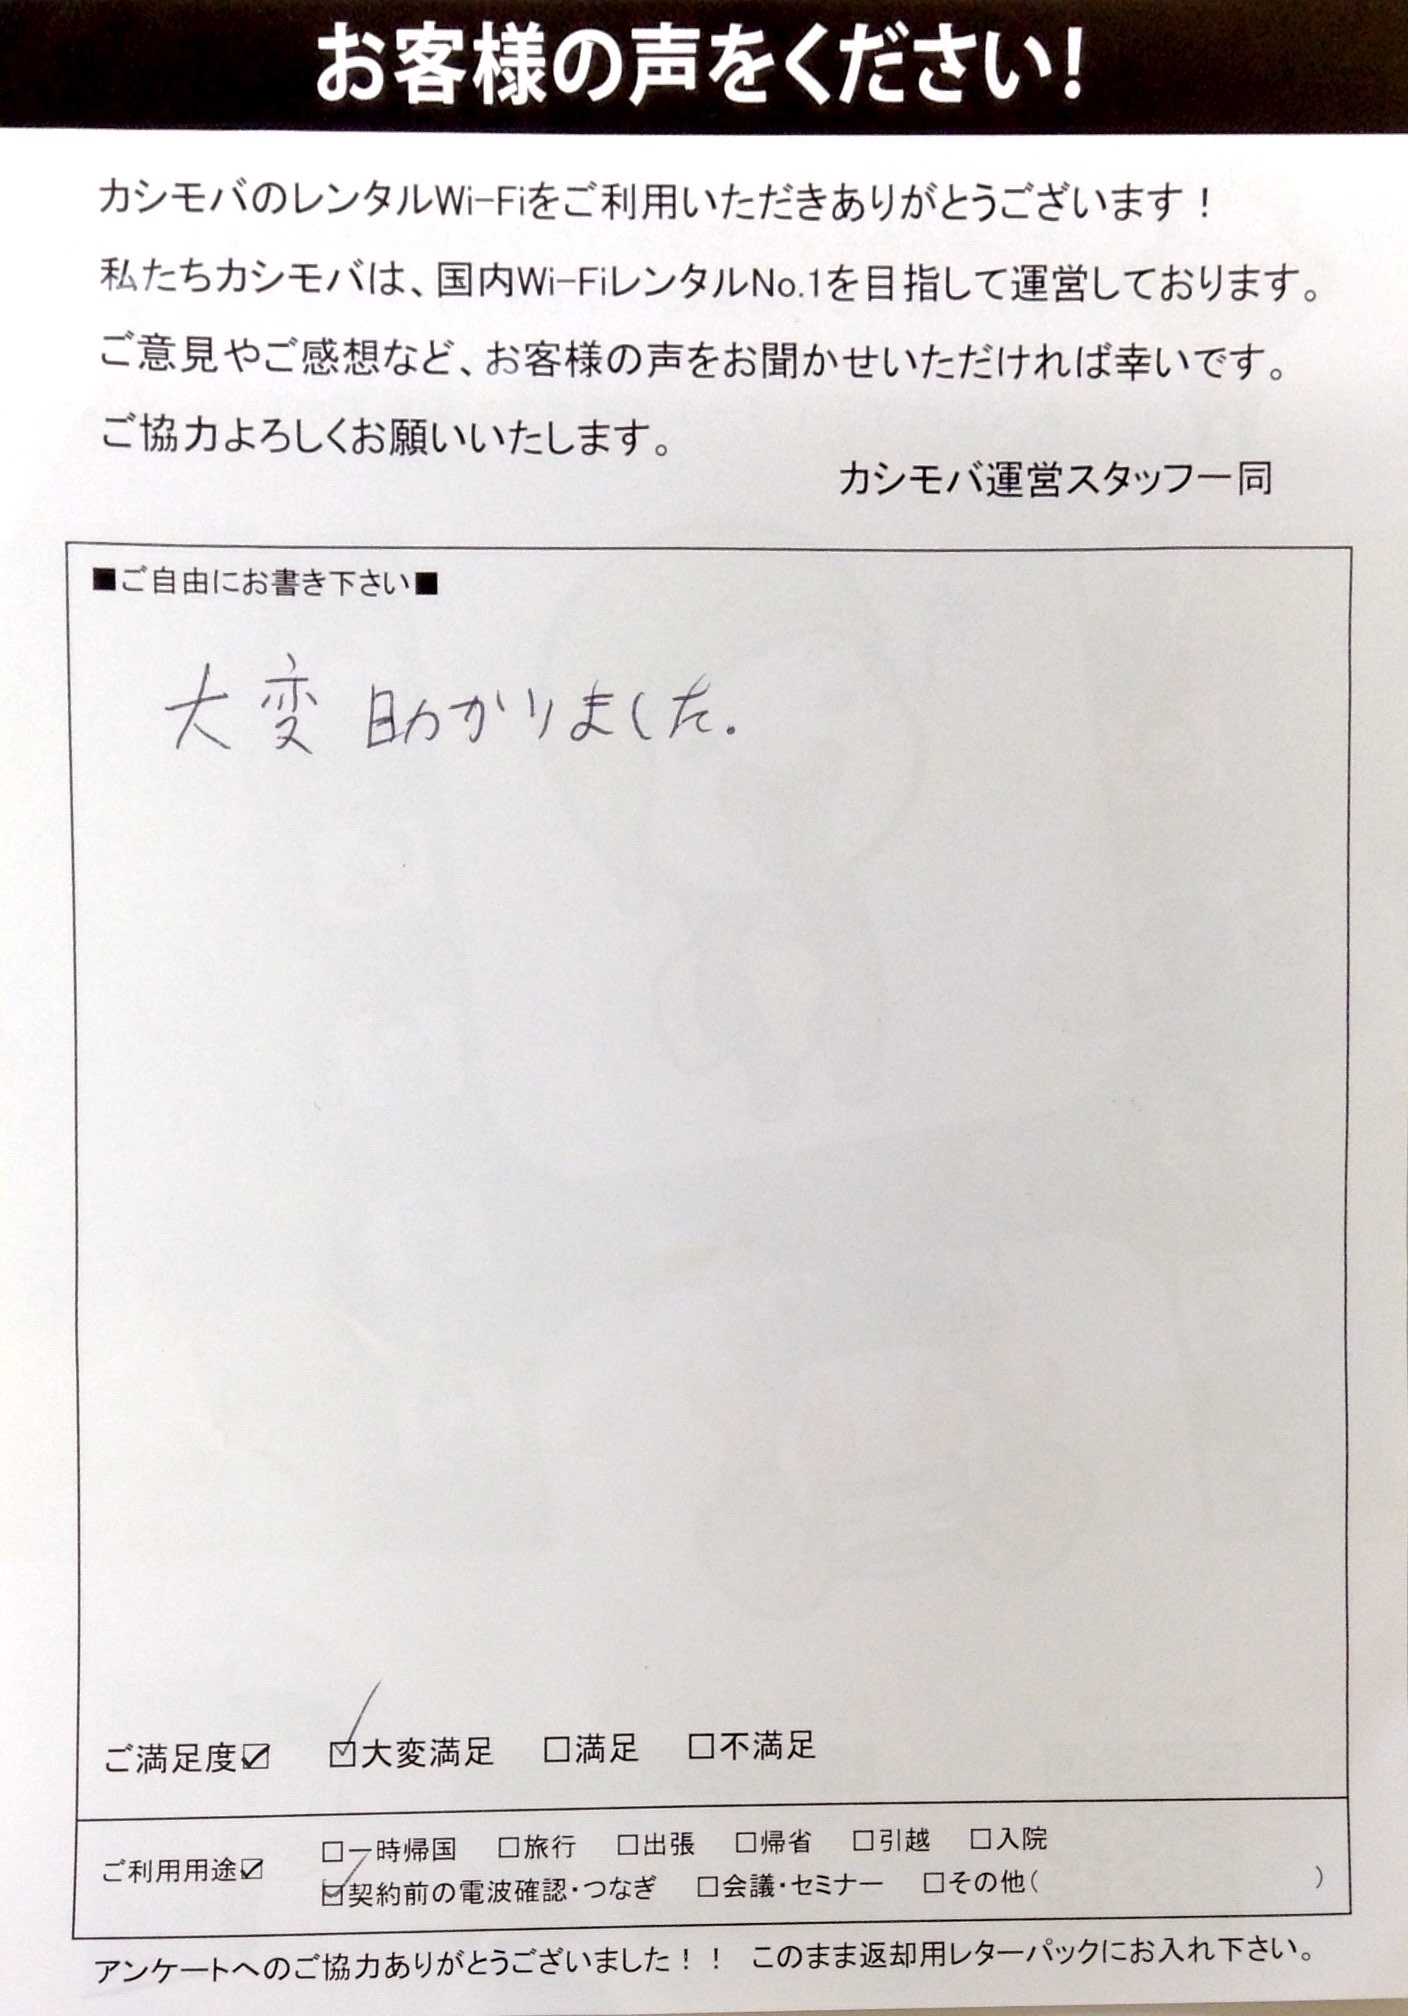 お客様の声をください!
カシモバのレンタルWi-Fiをご利用いただきありがとうございます！
私たちカシモバは、国内Wi-FiレンタルNo.1を目指して運営しております。
ご意見やご感想など、お客様の声をお聞かせいただければ幸いです。
ご協力よろしくお願いいたします。
カシモバ運営スタッフ一同
■ご自由にお書き下さい■
大変助かりました.
ご満足度☑ ☑大変満足 □満足 □不満足
ご利用用途☑ □一時帰国 □旅行 □出張 □帰省 □引越 □入院
☑契約前の電波確認・つなぎ □会議・セミナー □その他( )
アンケートへのご協力ありがとうございました！！ このまま返却用レターパックにお入れ下さい。